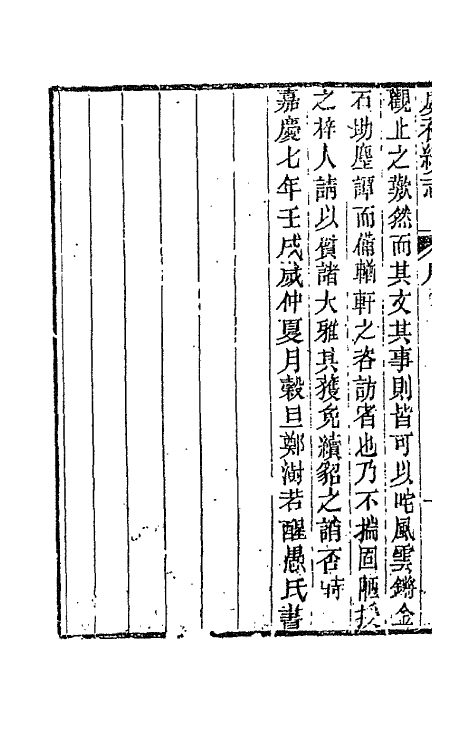 虞初續志
觀止之歎然而其文其事則皆可以咤風雲鏘金
石助麈譚而備輶軒之咨訪者也乃不揣固陋授
之梓人請以質諸大雅其獲免續貂之誚否時
嘉慶七年壬戌歲仲夏月穀旦鄭澍若醒愚氏書